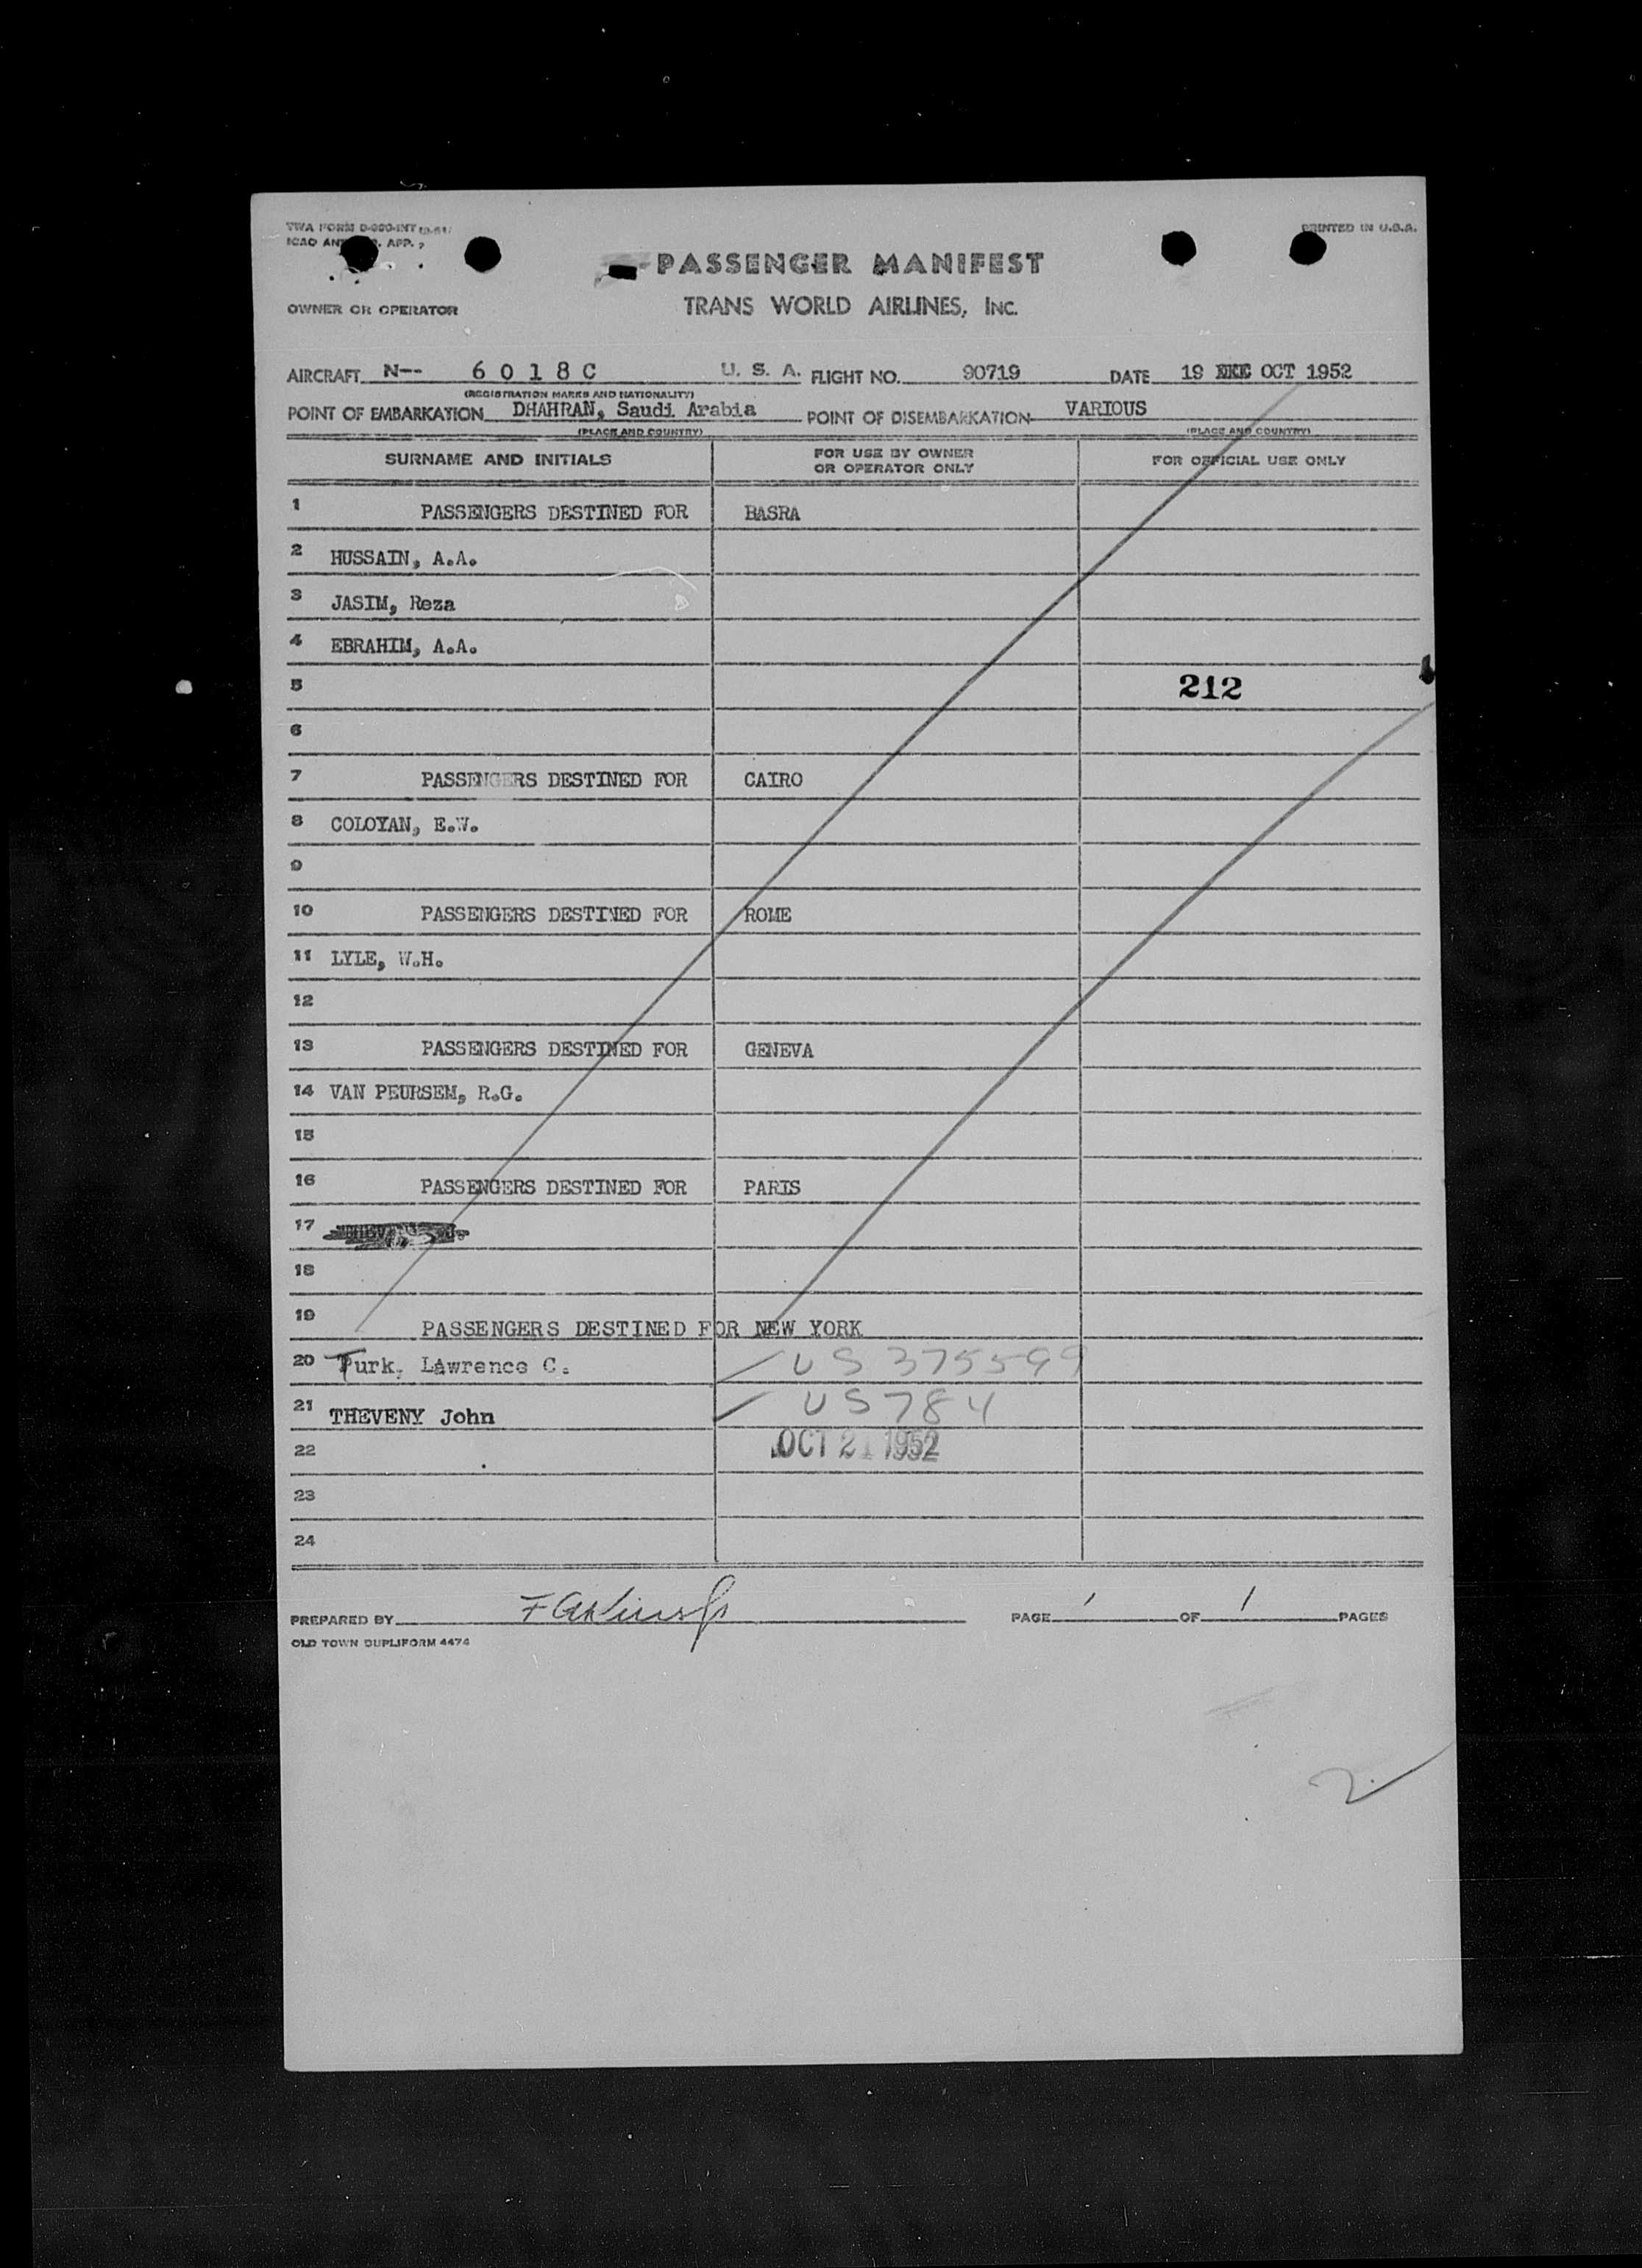 TWA FORM D-960-INT
ICAO APP.
PRINTED IN U.S.A.
PASSENGER MANIFEST
OWNER OR OPERATOR TRANS WORLD AIRLINES, INC.
AIRCRAFT N-- 6018C U. S. A. FLIGHT NO. 90719 DATE 19 OCT 1952
(REGISTRATION MARKS AND NATIONALITY)
POINT OF EMBARKATION DHAHRAN, Saudi Arabia POINT OF DISEMBARKATION VARIOUS
(PLACE AND COUNTRY) (PLACE AND COUNTRY)
SURNAME AND INITIALS FOR USE BY OWNER OR OPERATOR ONLY FOR OFFICIAL USE ONLY
1 PASSENGERS DESTINED FOR BASRA
2 HUSSAIN, A.A.
3 JASIM, Reza
4 EBRAHIM, A.A.
5 212
6
7 PASSENGERS DESTINED FOR CAIRO
8 COLOYAN, E.W.
9
10 PASSENGERS DESTINED FOR ROME
11 LYLE, W.H.
12
13 PASSENGERS DESTINED FOR GENEVA
14 VAN PEURSEM, R.G.
15
16 PASSENGERS DESTINED FOR PARIS
17
18
19 PASSENGERS DESTINED FOR NEW YORK
20 Turk, Lawrence C. US 375599
21 THEVENY John US 784
22 OCT 21 1952
23
24
PREPARED BY PAGE 1 OF 1 PAGES
OLD TOWN DUPLIFORM 4474
2